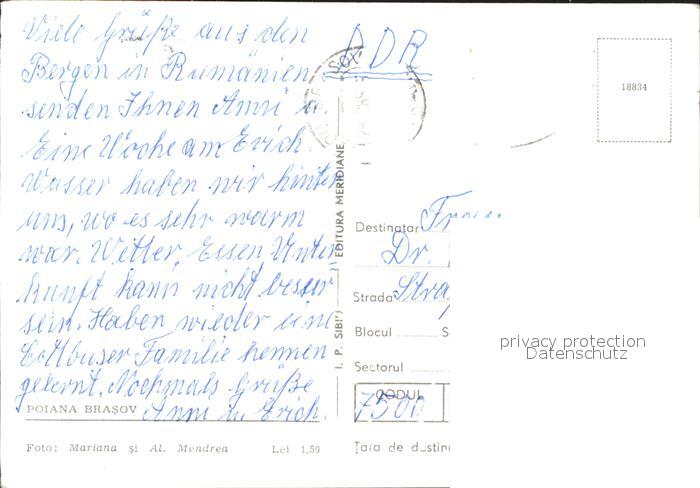 Viele Grüße aus den
Bergen in Rumänien
senden Ihnen Anni u.
Erich
Eine Woche am
Wasser haben wir hinter
uns, wo es sehr warm
war. Wetter, Essen Unter-
kunft kann nicht besser
sein. Haben wieder eine
Cottbuser Familie kennen
gelernt. Nochmals Grüße
Anni u. Erich.
POIANA BRAȘOV
Foto: Mariana și Al. Mendrea Lei 1,50
I. P. SIBIU EDITURA MERIDIANE
DDR
18834
Destinatar
Dr.
Strada
Blocul S
Sectorul
CODUL
7500
Țara de destin
privacy protection
Datenschutz